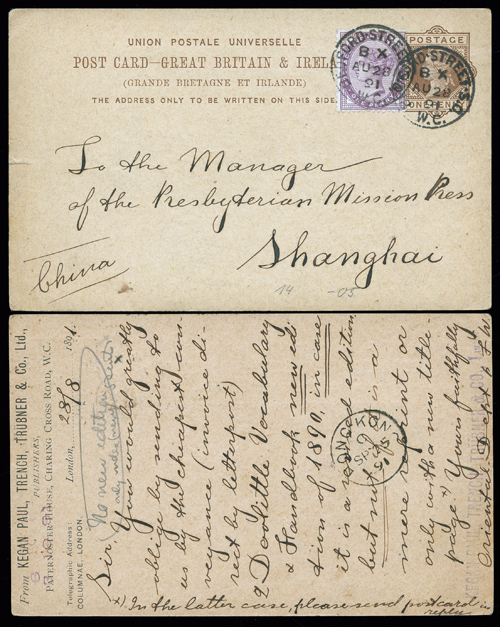 UNION POSTALE UNIVERSELLE
POST CARD—GREAT BRITAIN & IRELA
(GRANDE BRETAGNE ET IRLANDE)
THE ADDRESS ONLY TO BE WRITTEN ON THIS SIDE.
POSTAGE
ONE PENNY
BEDFORD-STREET-S.O.
B X
AU 28
91
W.C.
BEDFORD-STREET-S.O.
B X
AU 28
91
W.C.
To the Manager
of the Presbyterian Mission Press
Shanghai
China
14 -05
From KEGAN PAUL, TRENCH, TRÜBNER & Co., Ltd.,
PUBLISHERS,
PATERNOSTER HOUSE, CHARING CROSS ROAD, W.C.
Telegraphic Address:
COLUMNAE, LONDON.
London, 28/8 1891.
No new edition
only
Sir, You would greatly
oblige by sending to
us by the cheapest con-
veyance (invoice di-
rect by letterpost)
2 Doolittle Vocabulary
& Handbook new edi
tion of 1890, in case
it is a revised edition
but not if it is a
mere reprint or
only with a new title-
page x) Yours faithfully
Oriental Dept
HONGKONG
SP
91
x) In the latter case, please send postcard in
reply